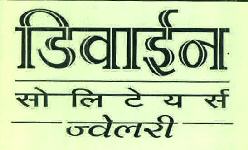 डिवाईन
सोलिटेयर्स
ज्वेलरी